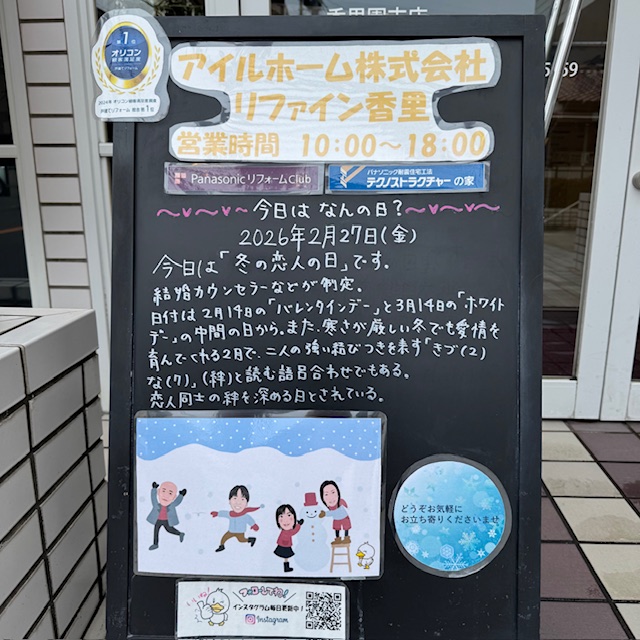 香里園支店
第1位
オリコン
顧客満足度
アイルホーム株式会社
リファイン香里
営業時間 10:00〜18:00
Panasonic リフォームClub
パナソニック耐震住宅工法
テクノストラクチャーの家
今日は なんの日?
2026年2月27日(金)
今日は「冬の恋人の日」です。
結婚カウンセラーなどが制定。
日付は2月14日の「バレンタインデー」と3月14日の「ホワイト
デー」の中間の日から。また、寒さが厳しい冬でも愛情を
育んでくれる2月で、二人の強い結びつきを表す「きづ(2)
な(7)」(絆)と読む語呂合わせでもある。
恋人同士の絆を深める日とされている。
どうぞお気軽に
お立ち寄りくださいませ
フォローしてネ!
いいね!
インスタグラム毎日更新中!
Instagram